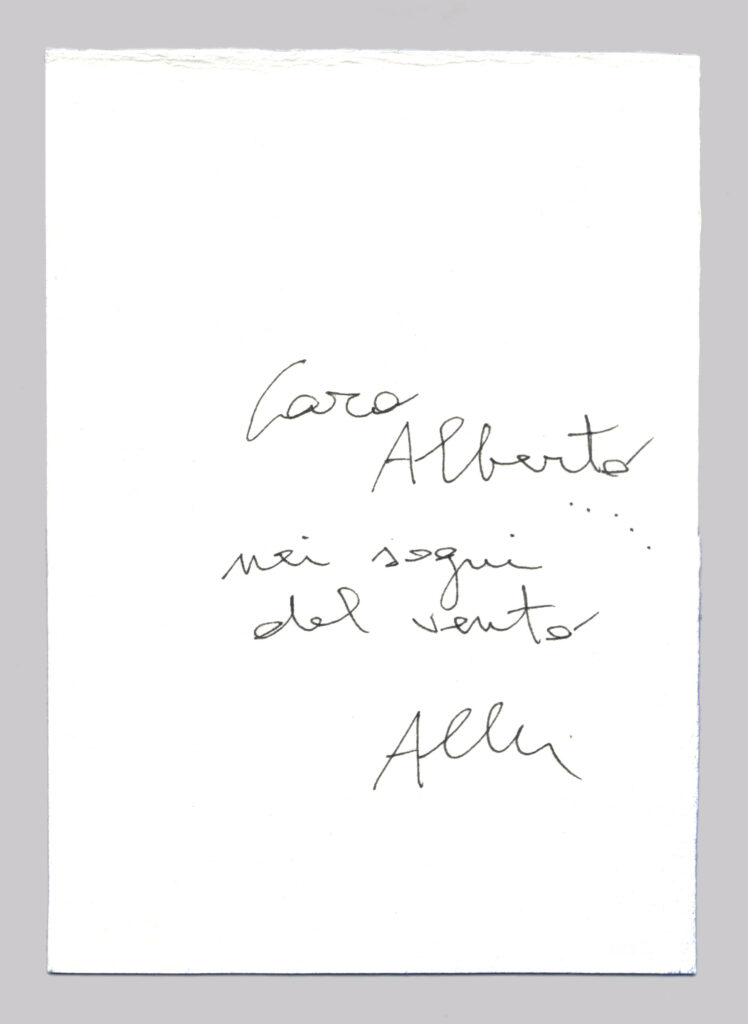 Caro
Alberto
.....
nei sogni
del vento